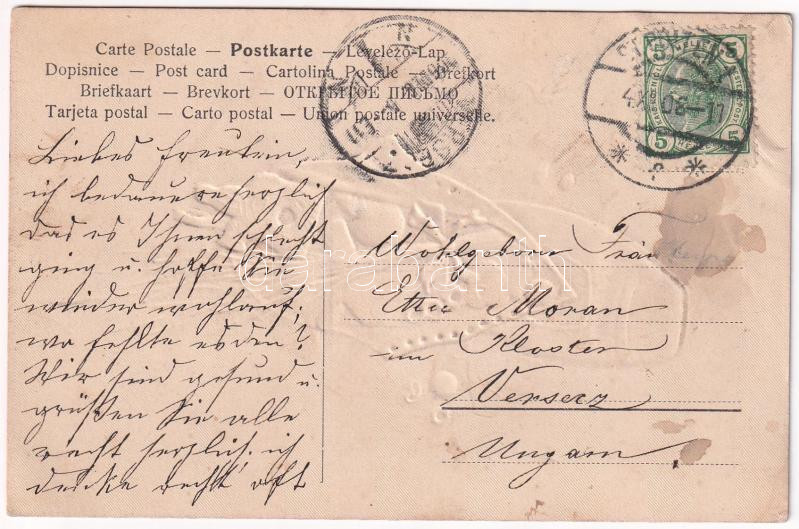 Carte Postale — Postkarte — Levelező-Lap
Dopisnice — Post card — Cartolina Postale — Brefkort
Briefkaart — Brevkort — ОТКРЫТОЕ ПИСЬМО
Tarjeta postal — Carto postal — Union postale universelle.
5 5
5 5
Liebes Freulein,
ich bedauere herzlich
das es Ihnen schlecht
ging u. hoffe Sie
wieder wohlauf;
wo fehlte es den?
Wir sind gesund u.
grüßen Sie alle
recht herzlich. ich
denke recht oft
Wohlgeborn
Etta Moran
im Kloster
Versecz
Ungarn
darabanth